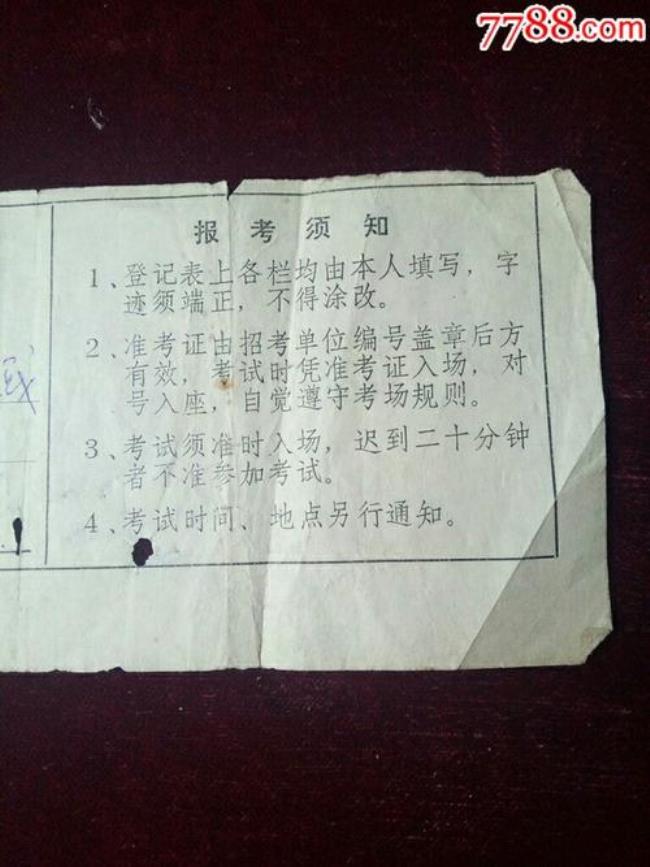 7788.com
报考须知
1、登记表上各栏均由本人填写，字
迹须端正，不得涂改。
2、准考证由招考单位编号盖章后方
有效，考试时凭准考证入场，对
号入座，自觉遵守考场规则。
3、考试须准时入场，迟到二十分钟
者不准参加考试。
4、考试时间、地点另行通知。